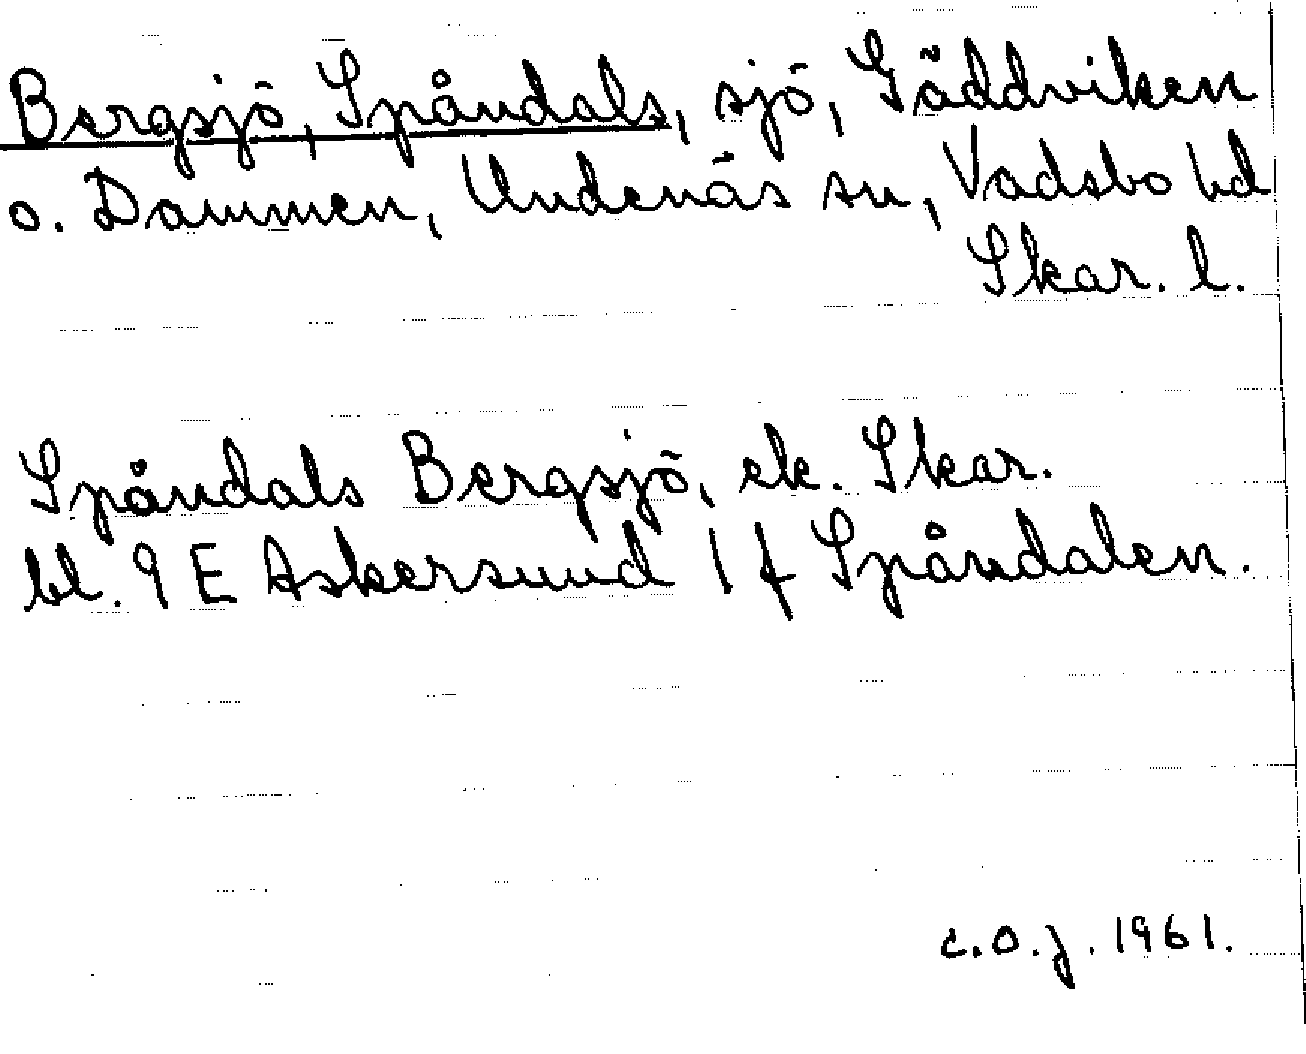 Bergsjö, Spåndals, sjö, Gäddviken
o. Dammen, Undenäs sn, Vadsbo hd
Skar. l.
Spåndals Bergsjö, ek. Skar.
bl. 9 E Askersund 1 f Spåndalen.
c.o.j. 1961.